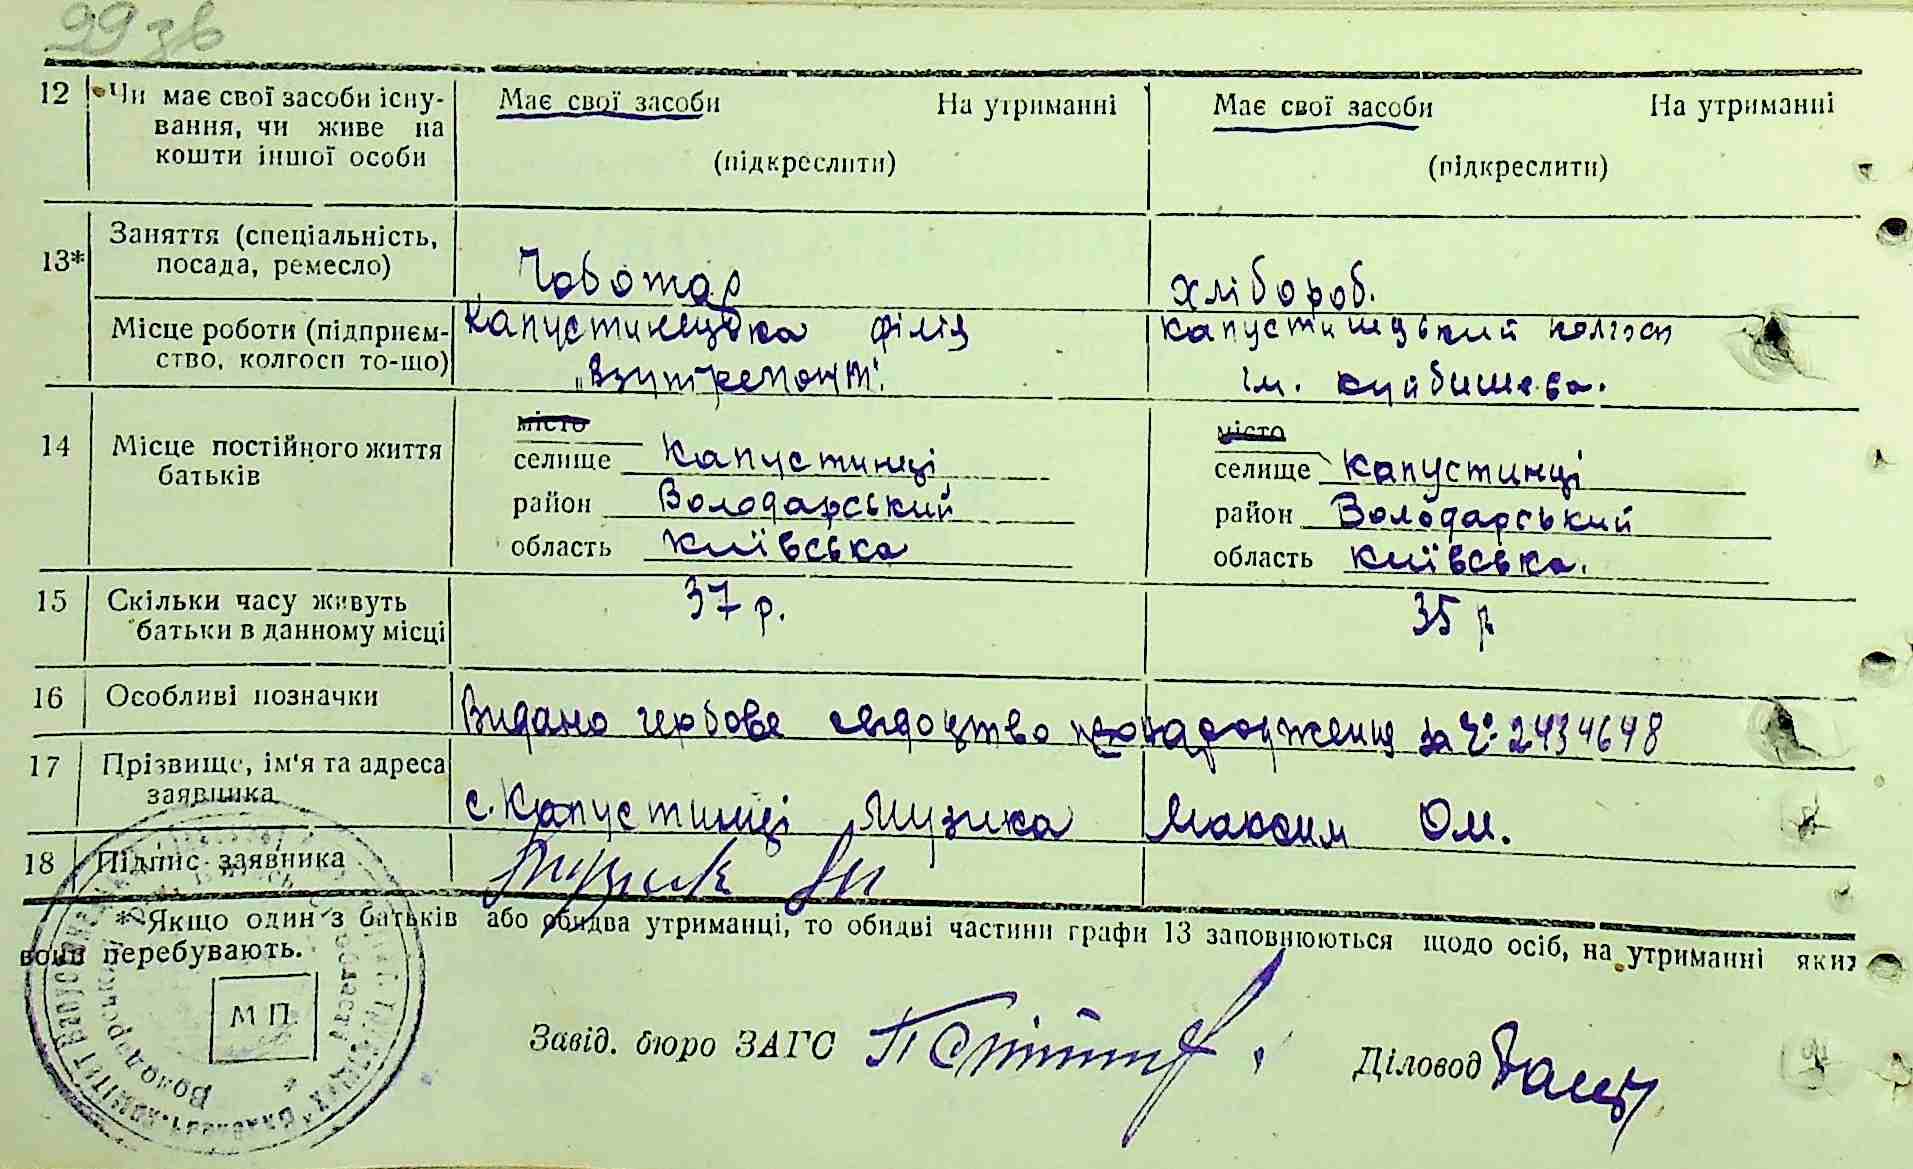 99 зв
12 Чи має свої засоби існу- Має свої засоби На утриманні Має свої засоби На утриманні
вання, чи живе на
кошти іншої особи (підкреслити) (підкреслити)
13* Заняття (спеціальність,
посада, ремесло) Чоботар хлібороб.
Місце роботи (підприєм- Капустинецька філія Капустинецький колгосп
ство, колгосп то-що) „Взутремонт". ім. Куйбишева.
місто місто
14 Місце постійного життя селище Капустинці селище Капустинці
батьків район Володарський район Володарський
область Київська область Київська.
15 Скільки часу живуть 37 р. 35 р.
батьки в данному місці
16 Особливі позначки Видано гербове свідоцтво про народження за Ч: 2434648
17 Прізвище, ім'я та адреса
заявника с. Капустинці Музика Максим Ом.
18 Підпис заявника Музика
* Якщо один з батьків або обидва утриманці, то обидві частини графи 13 заповнюються щодо осіб, на утриманні яких
вони перебувають.
МП
Завід. бюро ЗАГС Діловод